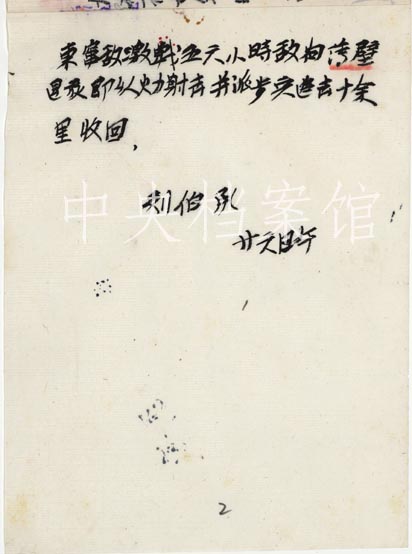 東窜敌激战五六小時敌向湾壁
退我即以火力射击并派步兵追击十余
里收回，
中央档案馆
刘伯承
廿六日午
2